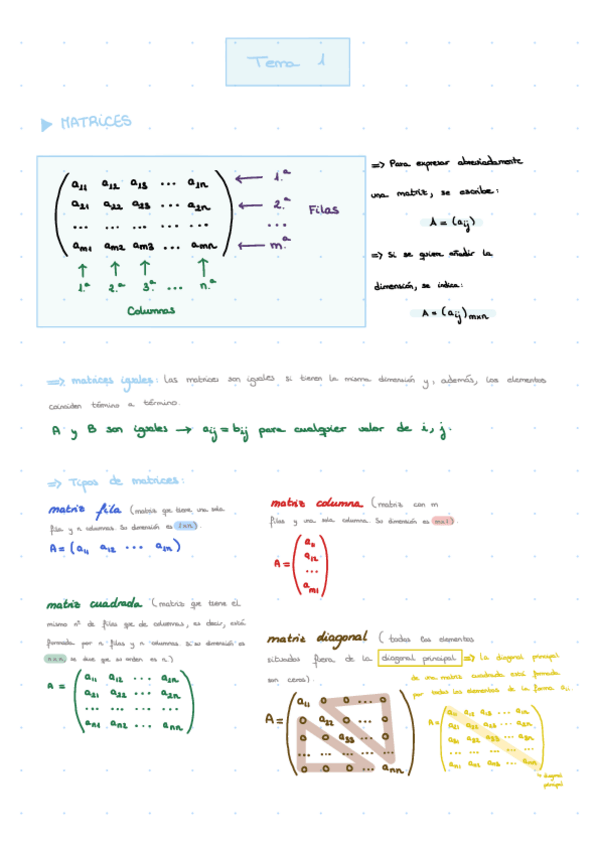 Tema 1
MATRICES
a11 a12 a13 ... a1n ← 1.ª
a21 a22 a23 ... a2n ← 2.ª Filas
... ... ... ... ...
am1 am2 am3 ... amn ← m.ª
↑ ↑ ↑ ↑
1.ª 2.ª 3.ª ... n.ª
Columnas
=> Para expresar abreviadamente
una matriz, se escribe:
A = (aij)
=> Si se quiere añadir la
dimensión, se indica:
A = (aij)mxn
=> matrices iguales: Las matrices son iguales si tienen la misma dimensión y, además, los elementos
coinciden término a término.
A y B son iguales → aij = bij para cualquier valor de i, j.
=> Tipos de matrices:
matriz fila (matriz que tiene una sola
fila y n columnas. Su dimensión es 1xn).
A = (a11 a12 ... a1n)
matriz columna (matriz con m
filas y una sola columna. Su dimensión es mx1).
a11
a12
A = ...
am1
matriz cuadrada (matriz que tiene el
mismo nº de filas que de columnas, es decir, está
formada por n filas y n columnas. Si su dimensión es
nxn se dice que su orden es n.)
a11 a12 ... a1n
A = a21 a22 ... a2n
... ... ... ...
an1 an2 ... ann
matriz diagonal (todos los elementos
situados fuera de la diagonal principal
son ceros).
a11 0 0 ... 0
A = 0 a22 0 ... 0
0 0 a33 ... 0
... ... ... ... ...
0 0 0 ... ann
=> La diagonal principal
de una matriz cuadrada está formada
por todos los elementos de la forma aii
a11 a12 a13 ... a1n
A = a21 a22 a23 ... a2n
a31 a32 a33 ... a3n
... ... ... ... ...
an1 an2 an3 ... ann
→ diagonal
principal